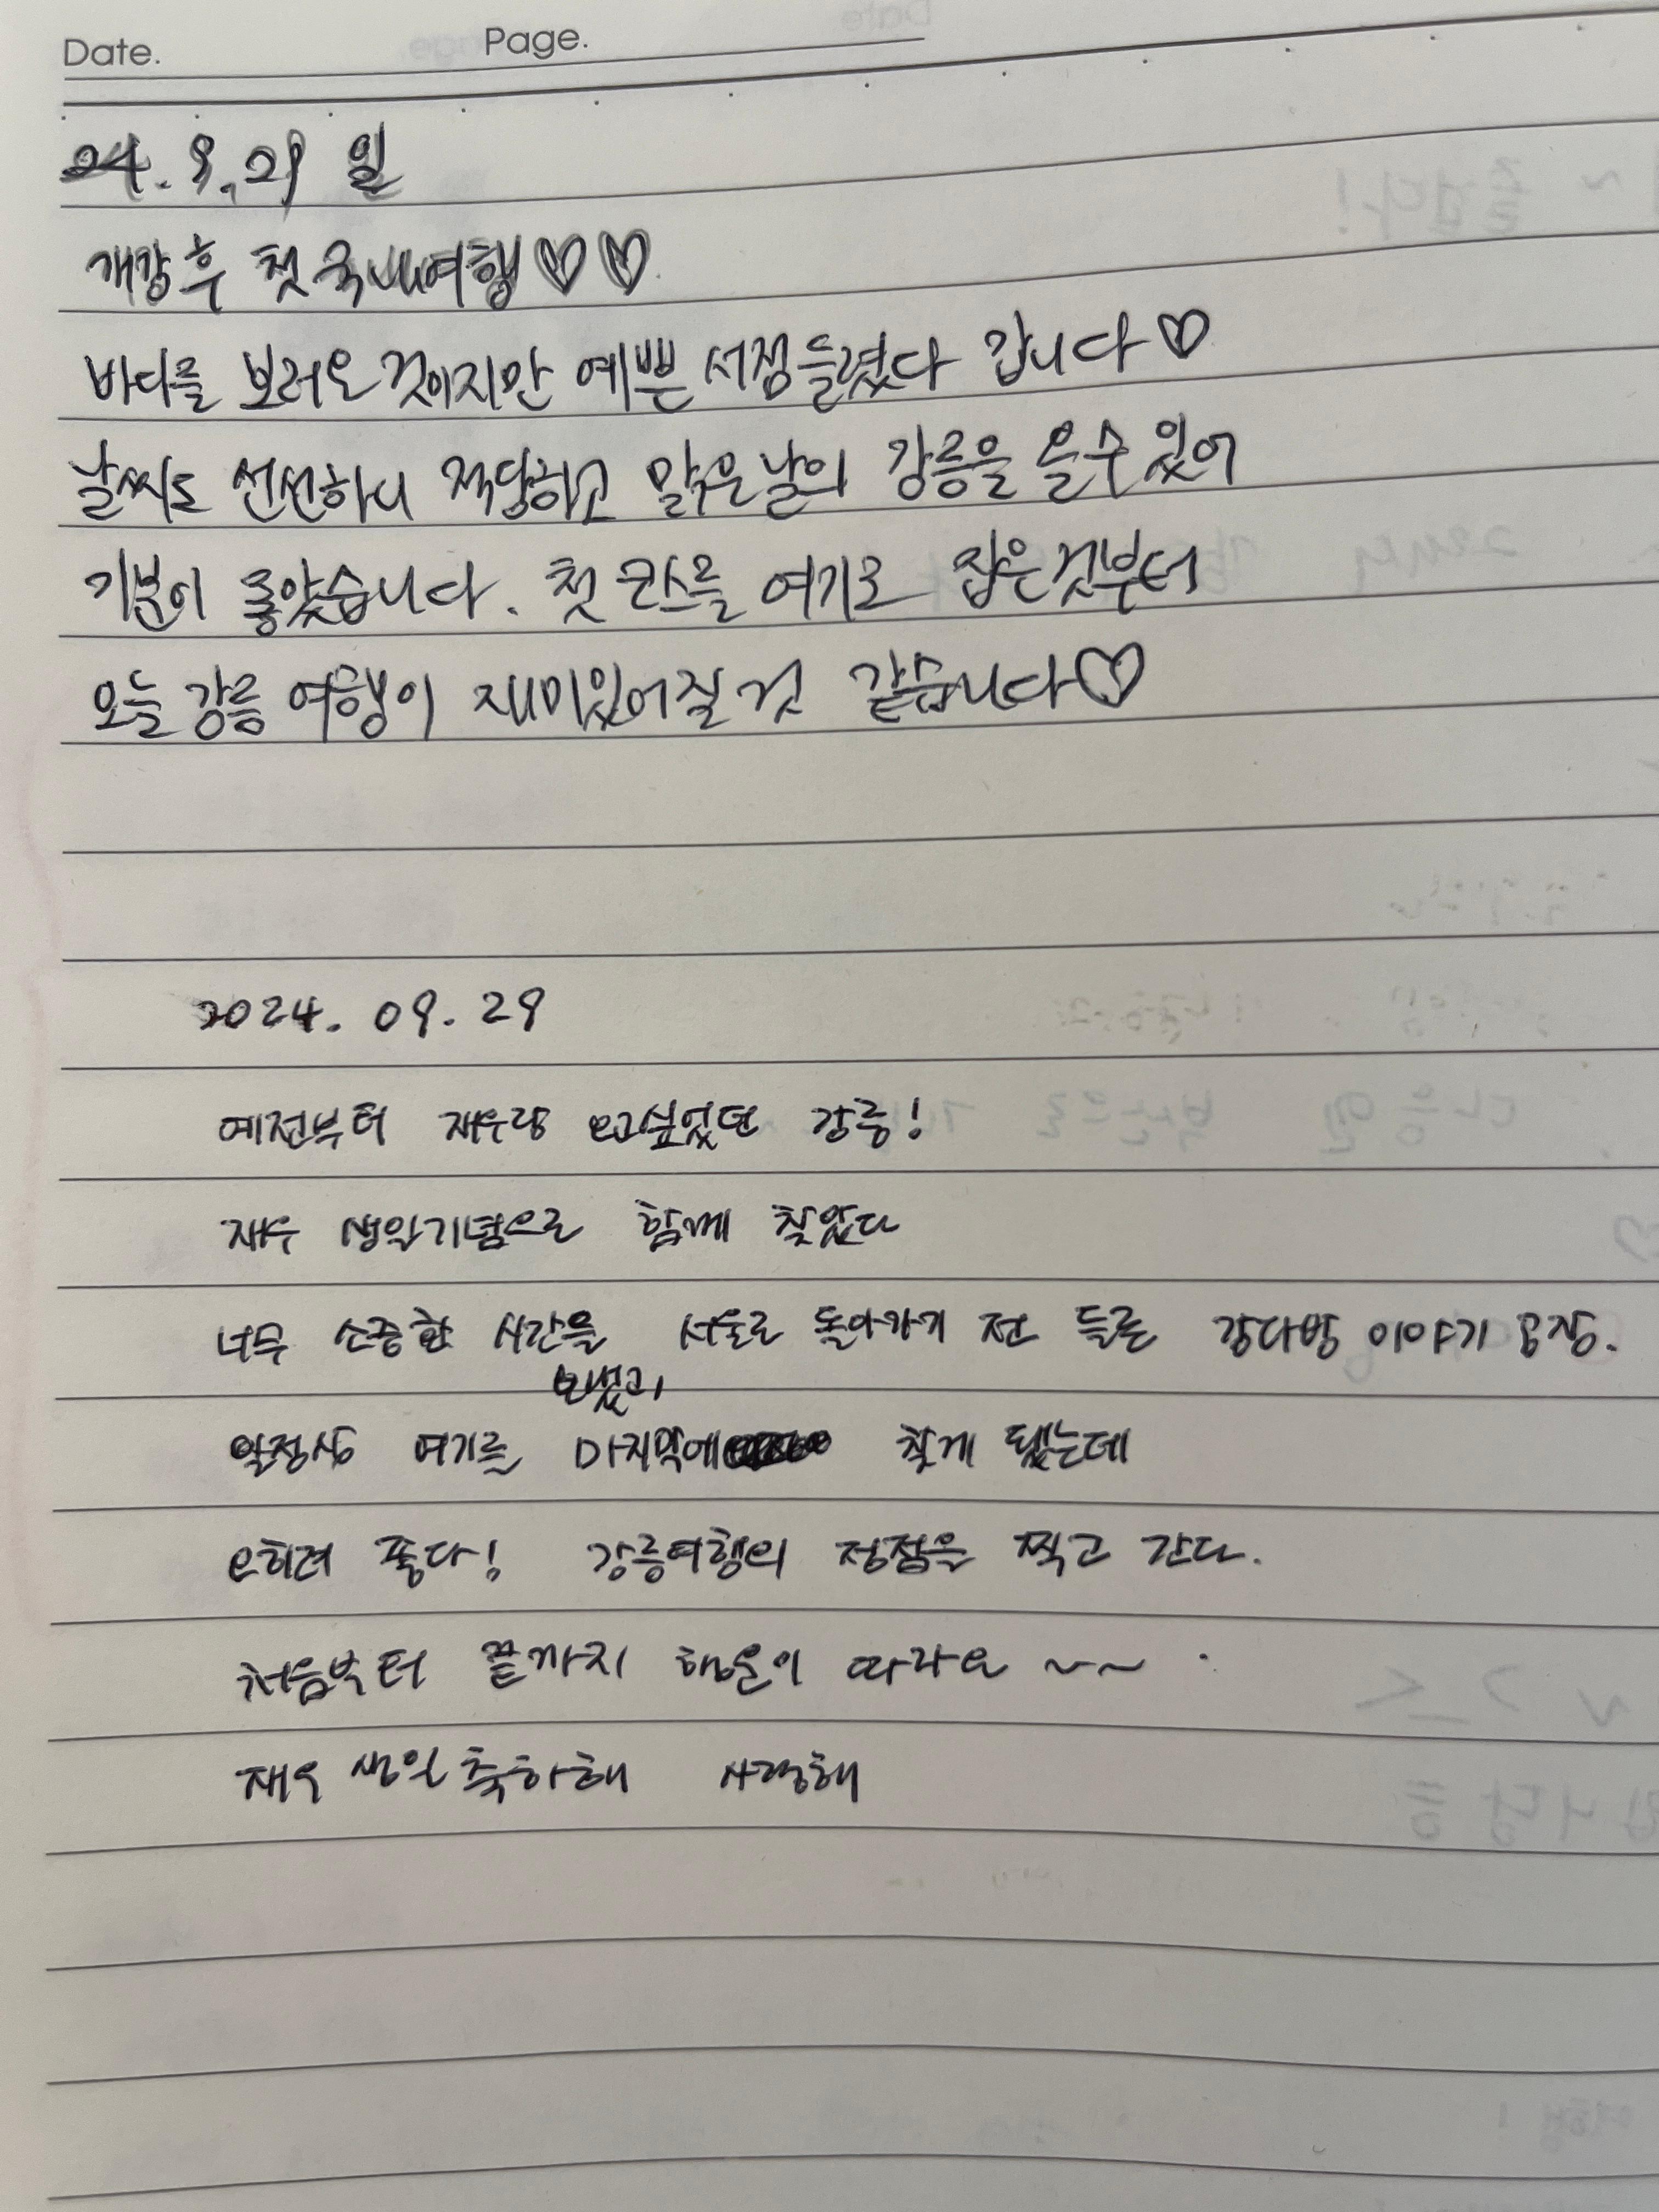 Date. Page.
24. 9. 29 일
개강 후 첫 국내여행♡♡
바다를 보러온 것이지만 예쁜 서점 들렸다 갑니다♡
날씨도 선선하니 적당하고 맑은 날의 강릉을 올 수 있어
기분이 좋았습니다. 첫 코스를 여기로 잡은것부터
오늘 강릉 여행이 재미있어질 것 같습니다♡
2024. 09. 29
예전부터 재우랑 오고싶었던 강릉!
재우 생일기념으로 함께 찾았다
너무 소중한 시간을 보냈고, 서울로 돌아가기 전 들른 강다방 이야기 공장.
일정상 여기를 마지막에 찾게 됐는데
오히려 좋다! 강릉여행의 정점을 찍고 간다.
처음부터 끝까지 행운이 따라요 ~~
재우 생일 축하해 사랑해